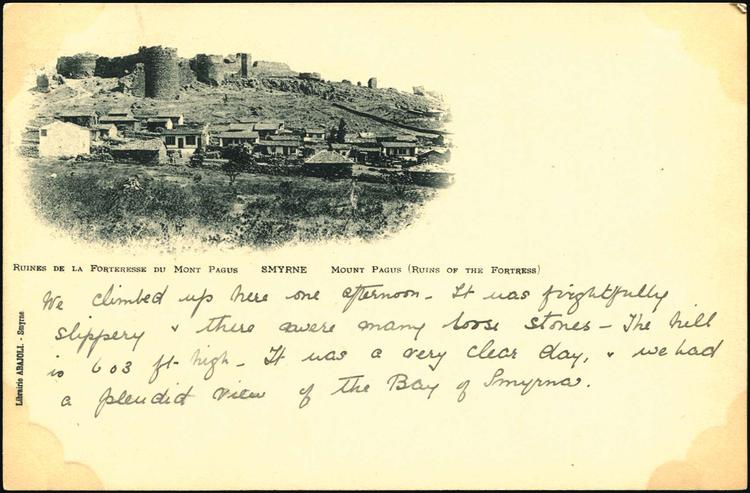 RUINES DE LA FORTERESSE DU MONT PAGUS SMYRNE MOUNT PAGUS (RUINS OF THE FORTRESS)
We climbed up here one afternoon - It was frightfully
slippery & there were many loose stones - The hill
is 603 ft. high - It was a very clear day, & we had
a splendid view of the Bay of Smyrna.
Librairie ABAJOLI. - Smyrne